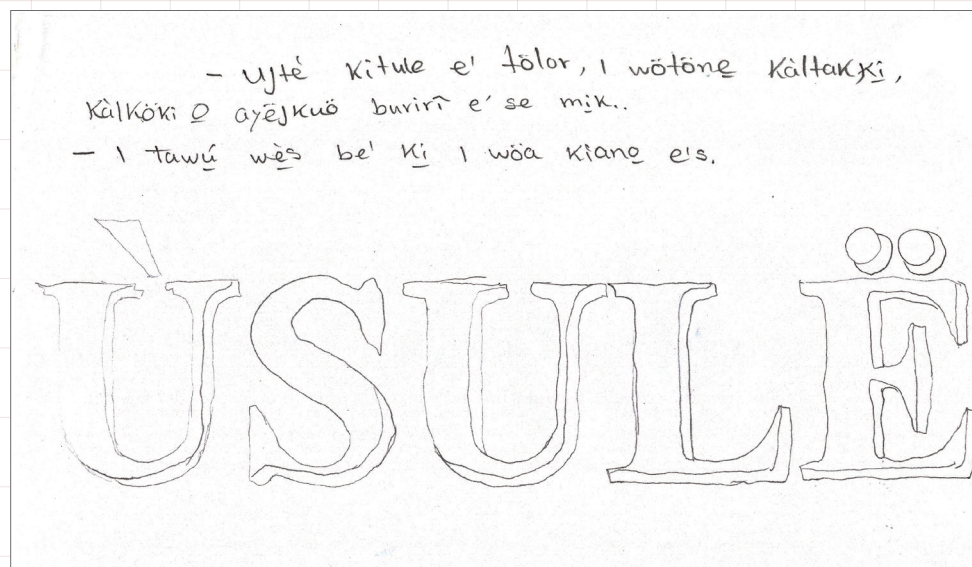 - Ujté kitule e' tölor, i wötöne̱ kàltakki̱,
kàlköki o̱ ayëjkuö burirî e' se mi̱k..
- I tawú̱ wè̱s be' ki̱ i wöa kiano̱ e's.
ÙSULË